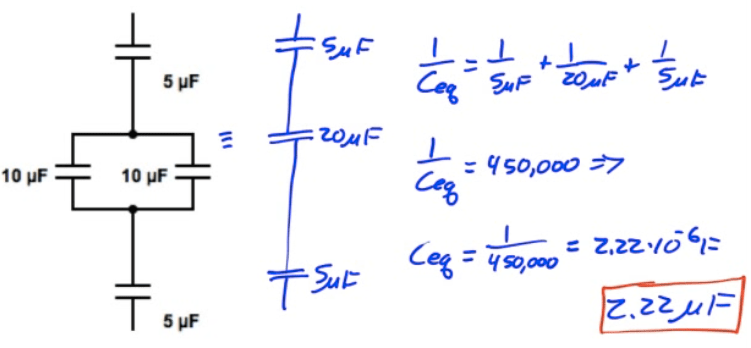 5 µF
10 µF
10 µF
5 µF
≡
5µF
20µF
5µF
1/Ceq = 1/5µF + 1/20µF + 1/5µF
1/Ceq = 450,000 =>
Ceq = 1/450,000 = 2.22·10⁻⁶F
2.22µF